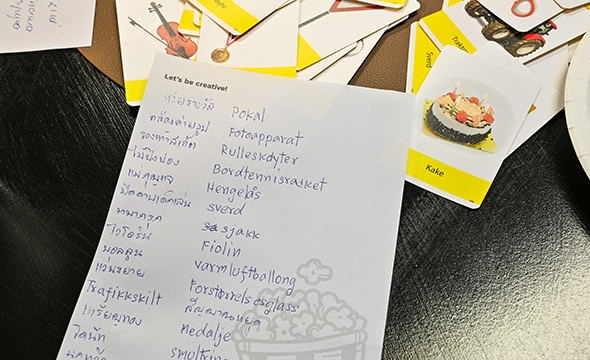 Let's be creative!
ถ้วยรางวัล Pokal
กล้องถ่ายรูป Fotoapparat
รองเท้าสเก็ต Rulleskøyter
ไม้ปิงปอง Bordtennisracket
แม่กุญแจ Hengelås
มีดดาบเด็กเล่น sverd
หมากรุก sjakk
ไวโอลิน Fiolin
บอลลูน varmluftballong
แว่นขยาย Forstørrelsesglass
Trafikkskilt สัญญาณหยุด
เหรียญทอง medalje
โดนัท smultring
Kake
Sverd
Trakto